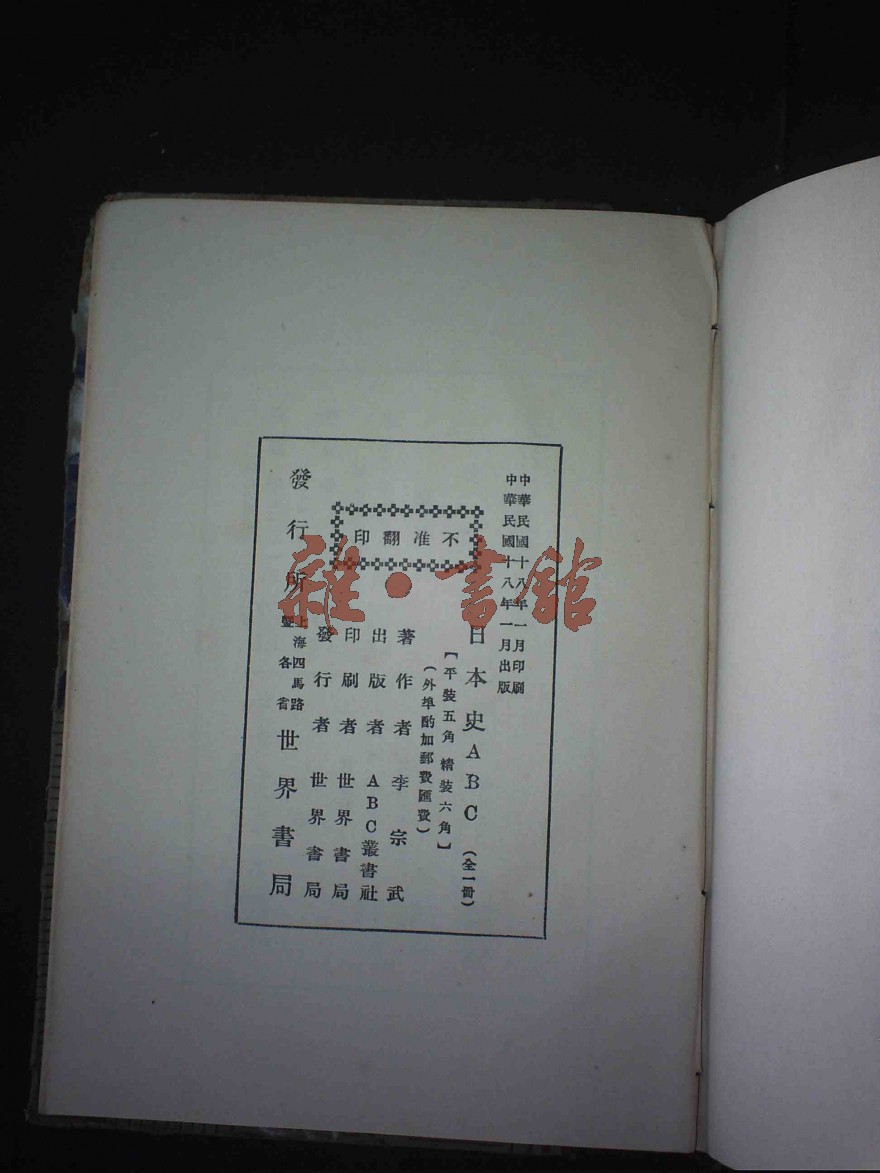 中華民國十八年一月印刷
中華民國十八年一月出版
日本史ABC（全一冊）
【平裝五角 精裝六角】
（外埠酌加郵費匯費）
不准翻印
著作者 李宗武
出版者 ABC叢書社
印刷者 世界書局
發行者 世界書局
發行所 上海四馬路暨各省 世界書局
雜·書館